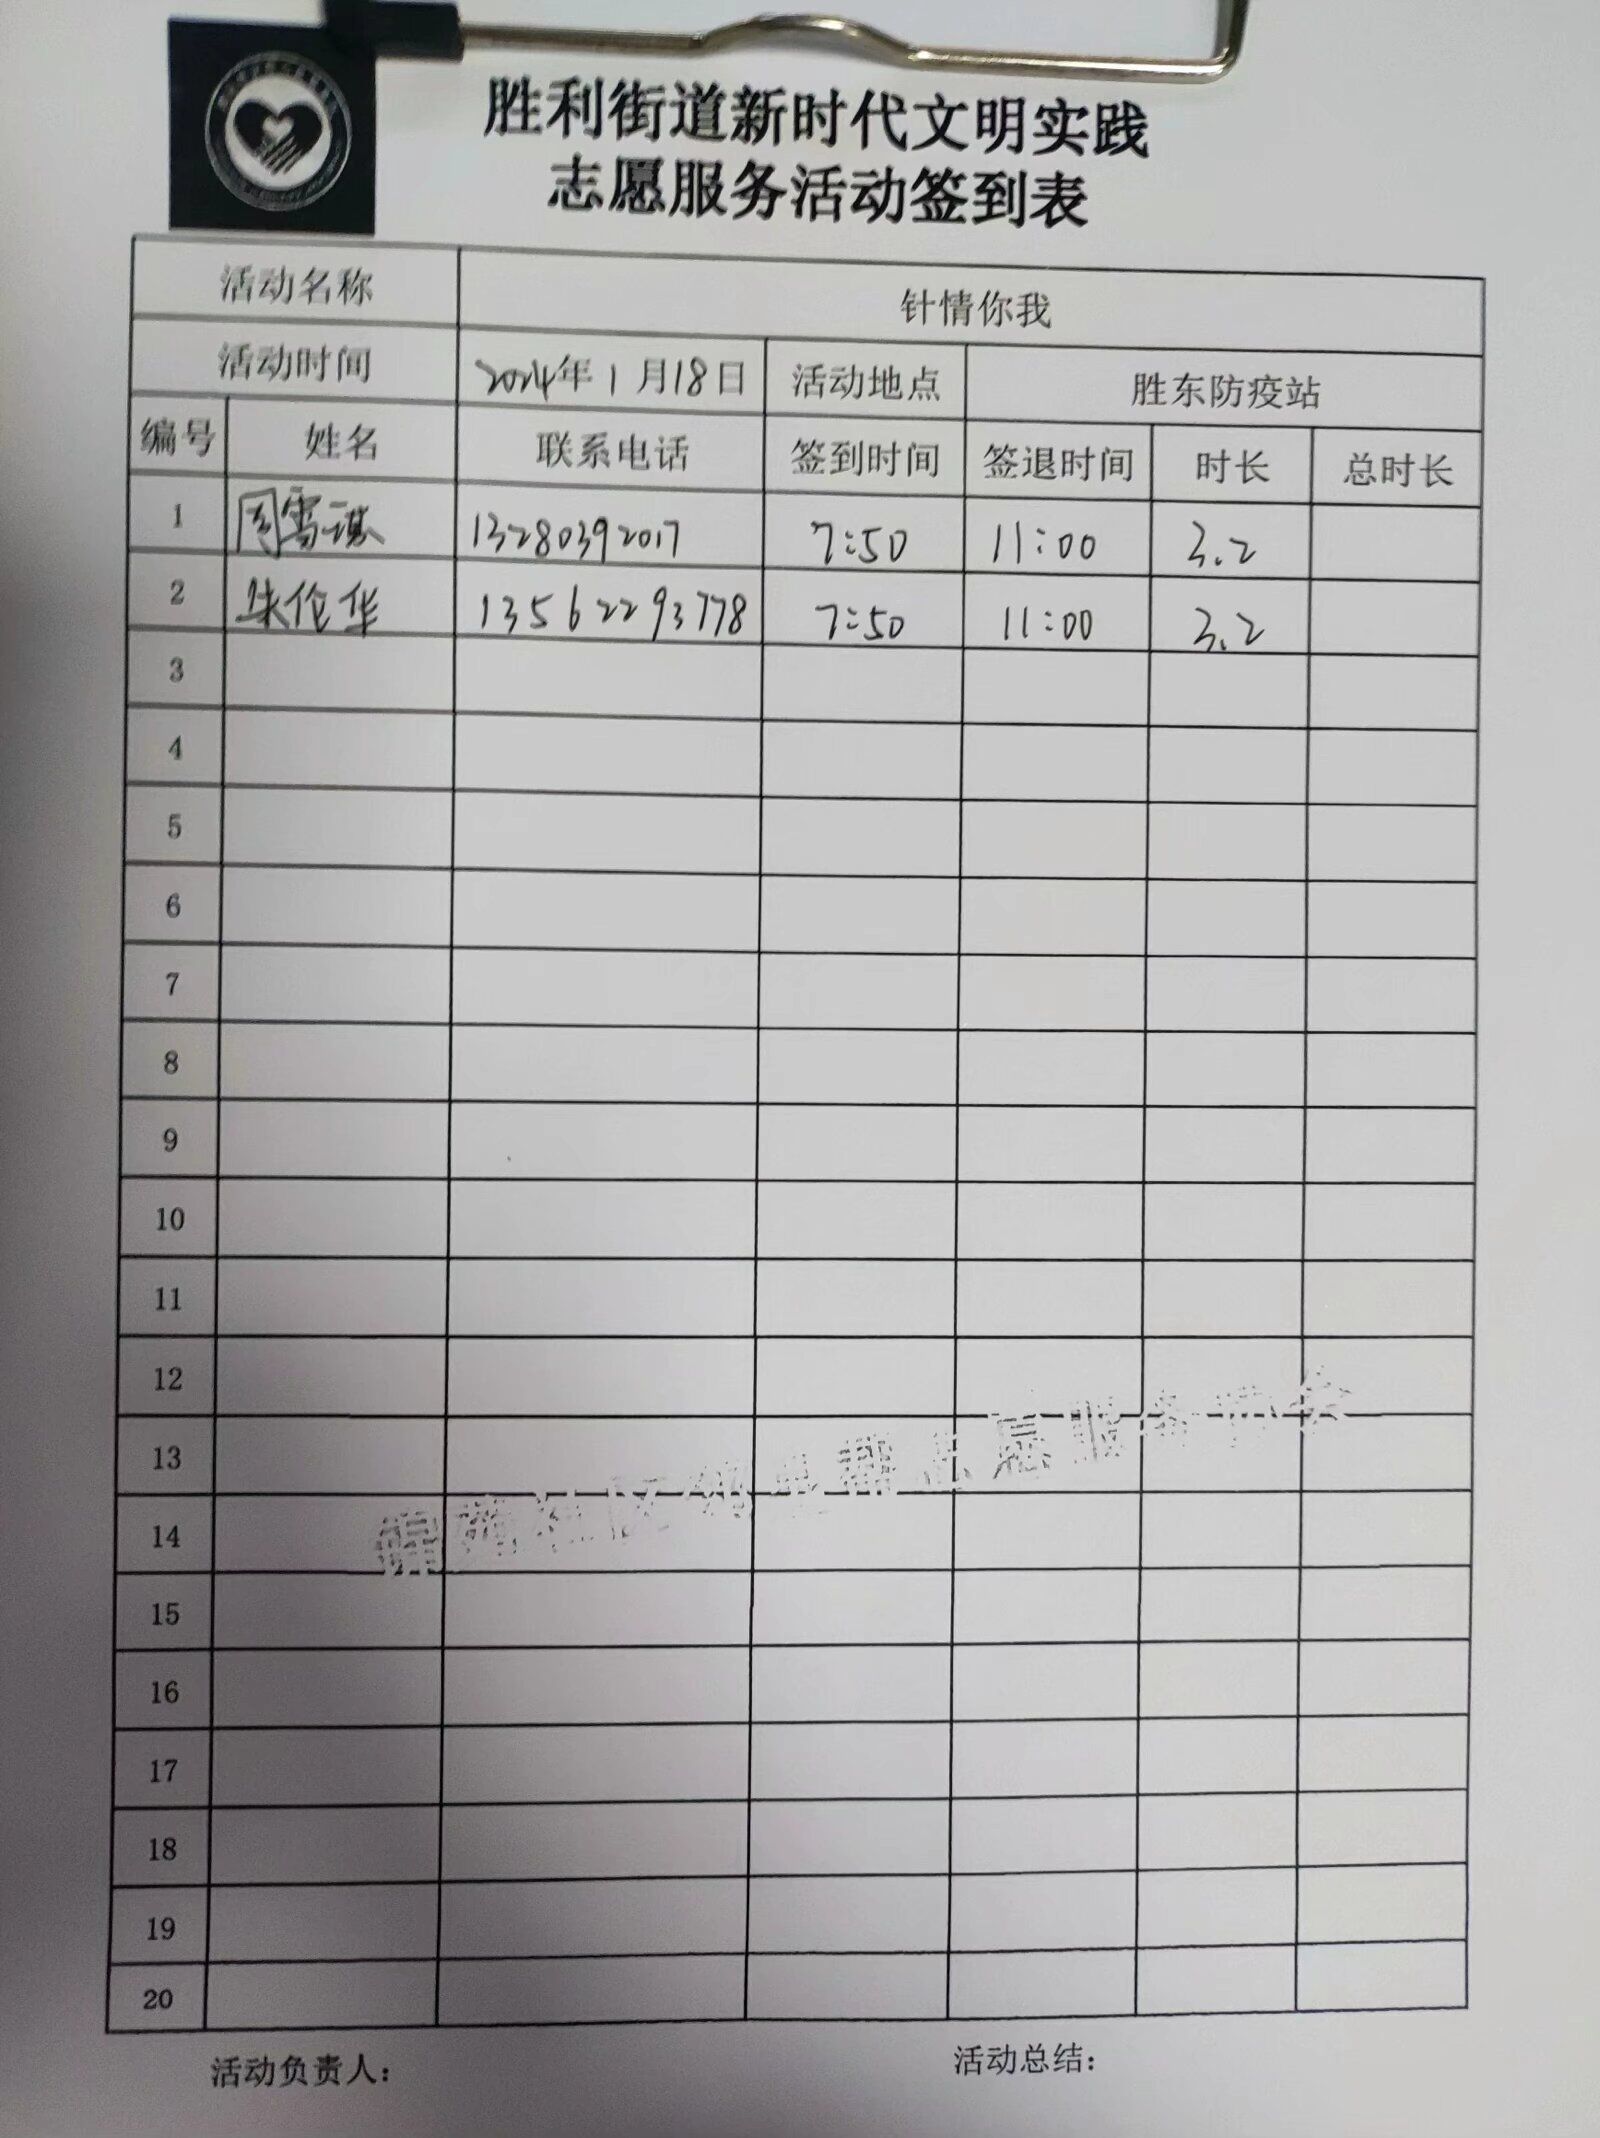 胜利街道新时代文明实践
志愿服务活动签到表
活动名称 针情你我
活动时间 2024年1月18日 活动地点 胜东防疫站
编号 姓名 联系电话 签到时间 签退时间 时长 总时长
1 周雪祺 13280392017 7:50 11:00 3.2
2 朱伦华 13562293778 7:50 11:00 3.2
3
4
5
6
7
8
9
10
11
12
13
14
15
16
17
18
19
20
活动负责人: 活动总结: